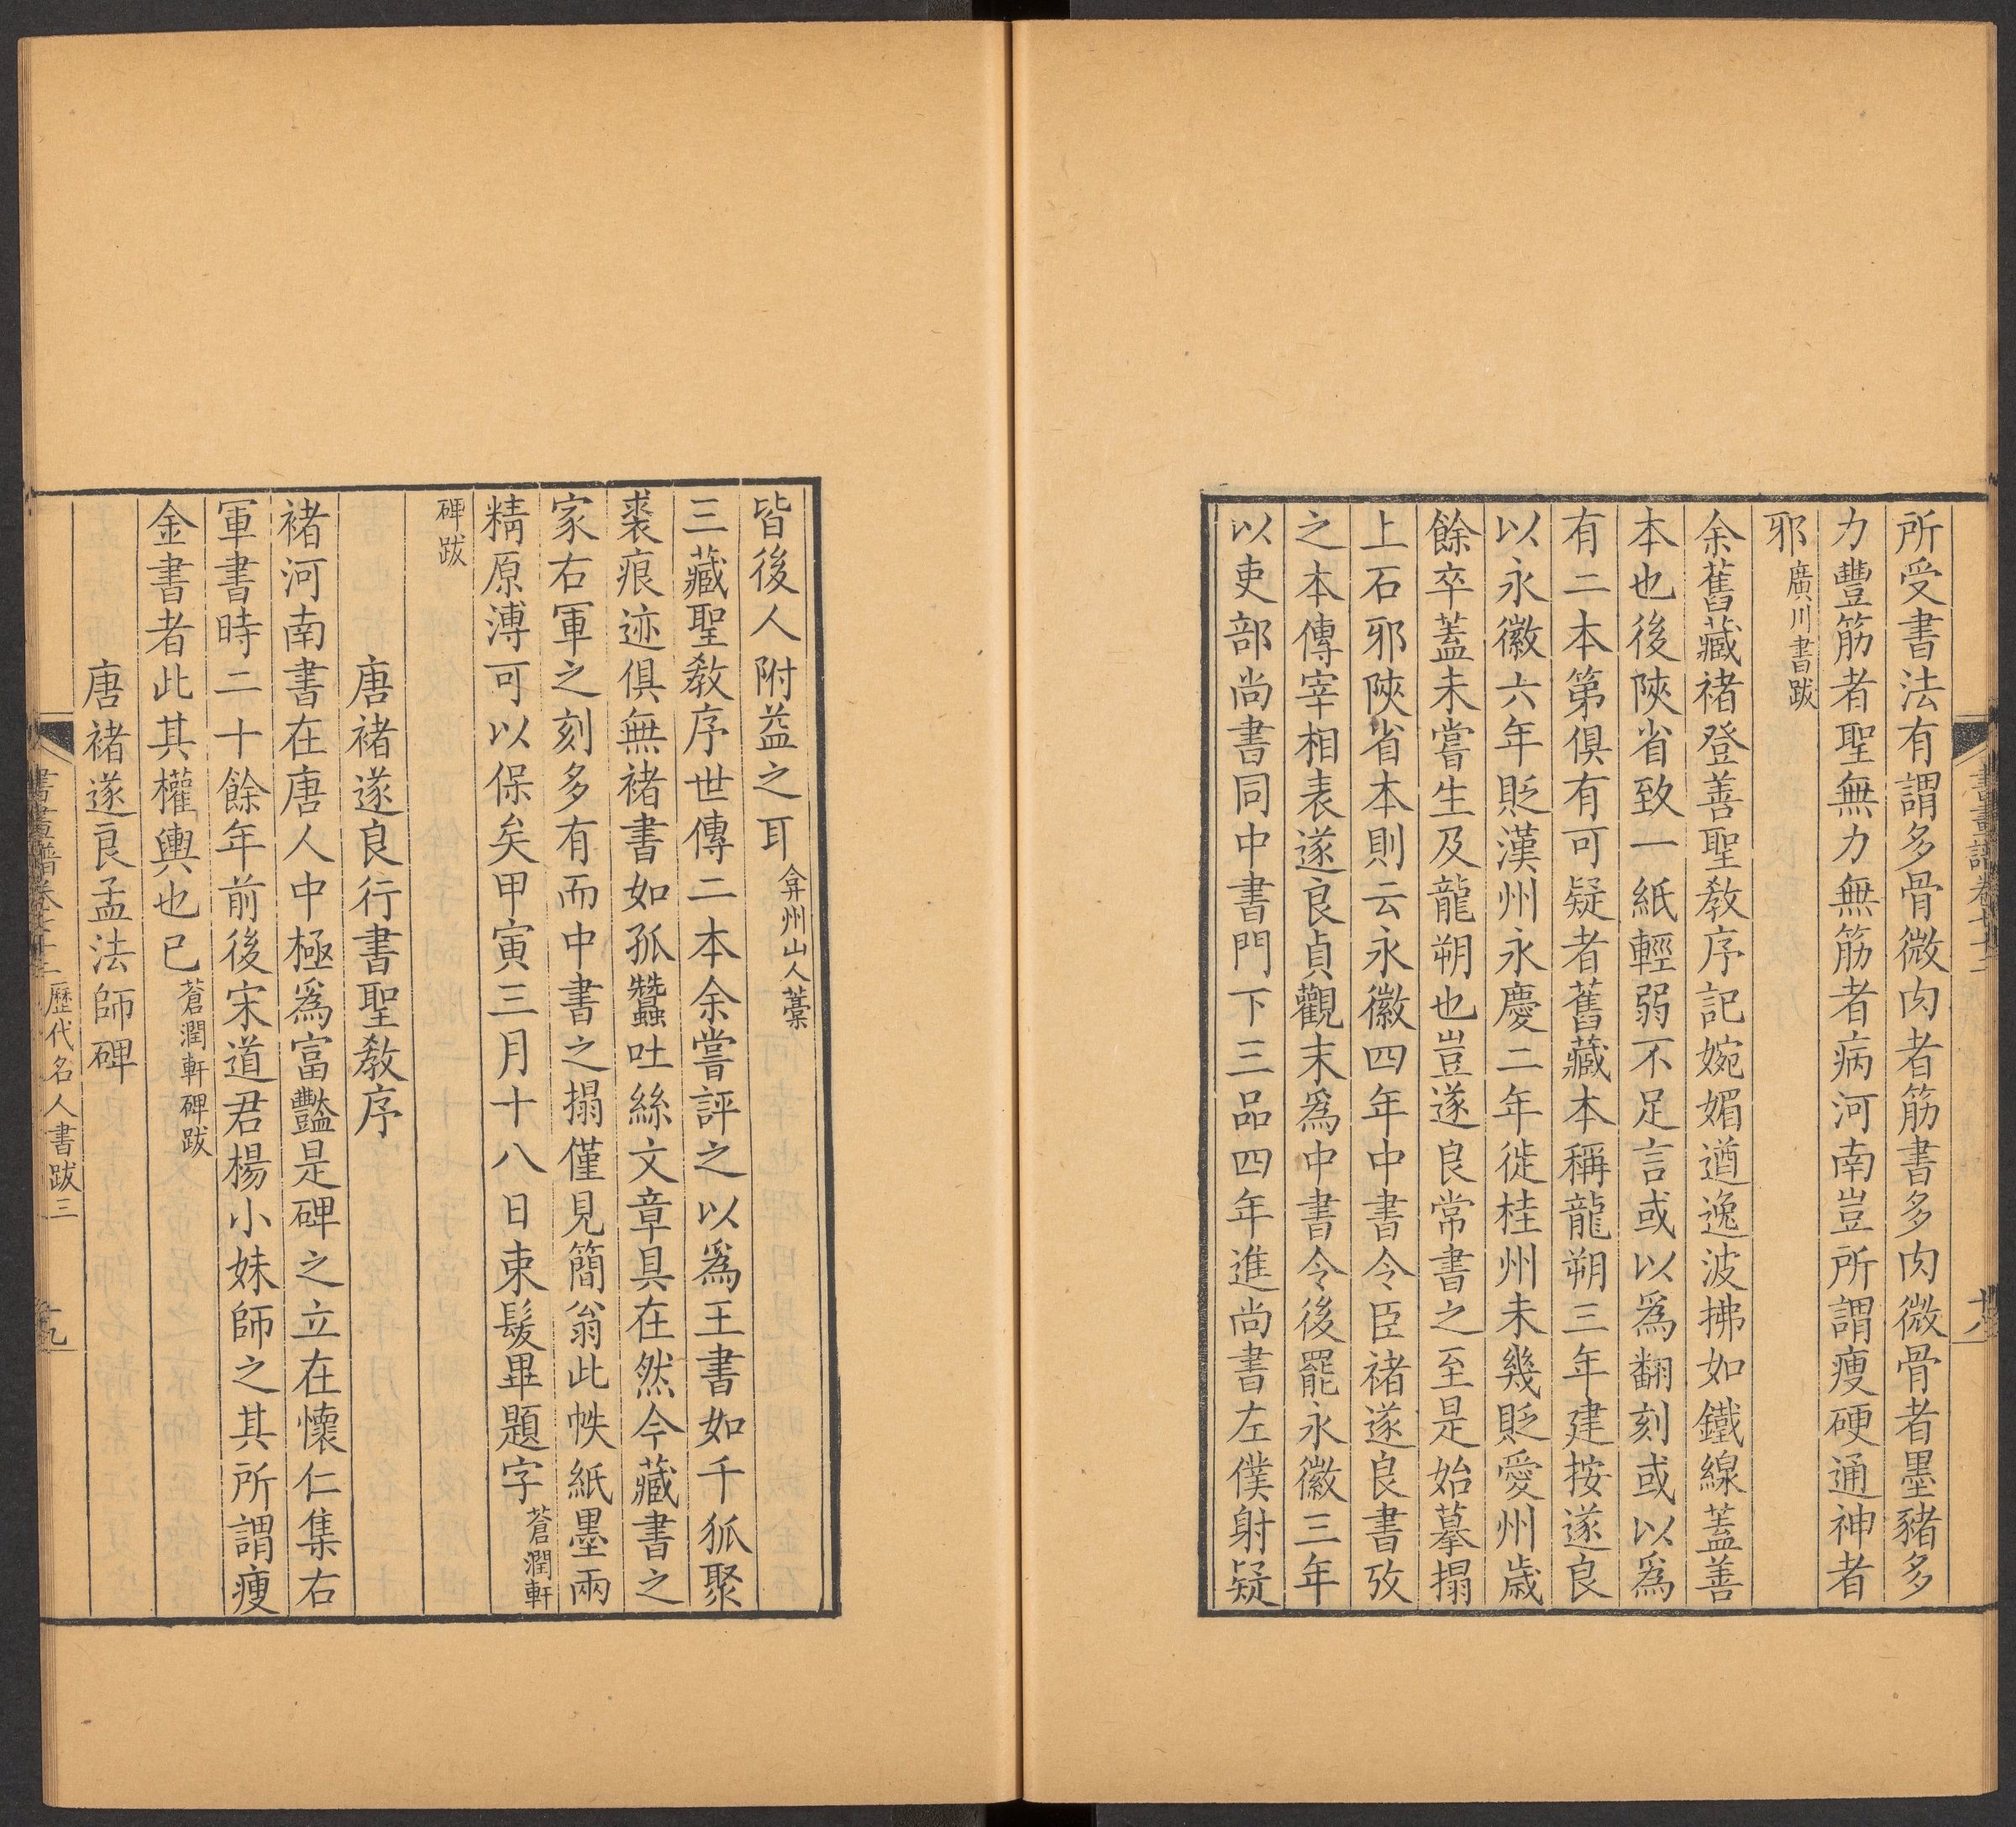 所受書法有謂多骨微肉者筋書多肉微骨者墨豬多
力豐筋者聖無力無筋者病河南豈所謂瘦硬通神者
邪廣川書跋
余舊藏褚登善聖敎序記婉媚遒逸波拂如鐵線蓋善
本也後陝省致一紙輕弱不足言或以爲翻刻或以爲
有二本第俱有可疑者舊藏本稱龍朔三年建按遂良
以永徽六年貶漢州永慶二年徙桂州未幾貶愛州歲
餘卒蓋未嘗生及龍朔也豈遂良常書之至是始摹搨
上石邪陝省本則云永徽四年中書令臣褚遂良書攷
之本傳宰相表遂良貞觀末爲中書令後罷永徽三年
以吏部尚書同中書門下三品四年進尚書左僕射疑
書畫譜卷七十二
十八
皆後人附益之耳弇州山人藁
三藏聖敎序世傳二本余嘗評之以爲王書如千狐聚
裘痕迹俱無褚書如孤蠶吐絲文章具在然今藏書之
家右軍之刻多有而中書之搨僅見簡翁此帙紙墨兩
精原溥可以保矣甲寅三月十八日束髮畢題字蒼潤軒
碑跋
唐褚遂良行書聖敎序
褚河南書在唐人中極爲富豔是碑之立在懷仁集右
軍書時二十餘年前後宋道君楊小妹師之其所謂瘦
金書者此其權輿也已蒼潤軒碑跋
唐褚遂良孟法師碑
書畫譜卷七十二 歷代名人書跋三
十九